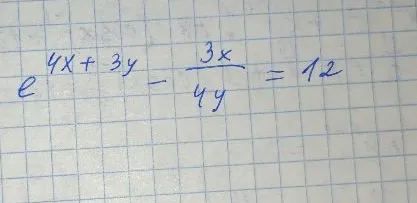 e^{4x + 3y} - \frac{3x}{4y} = 12